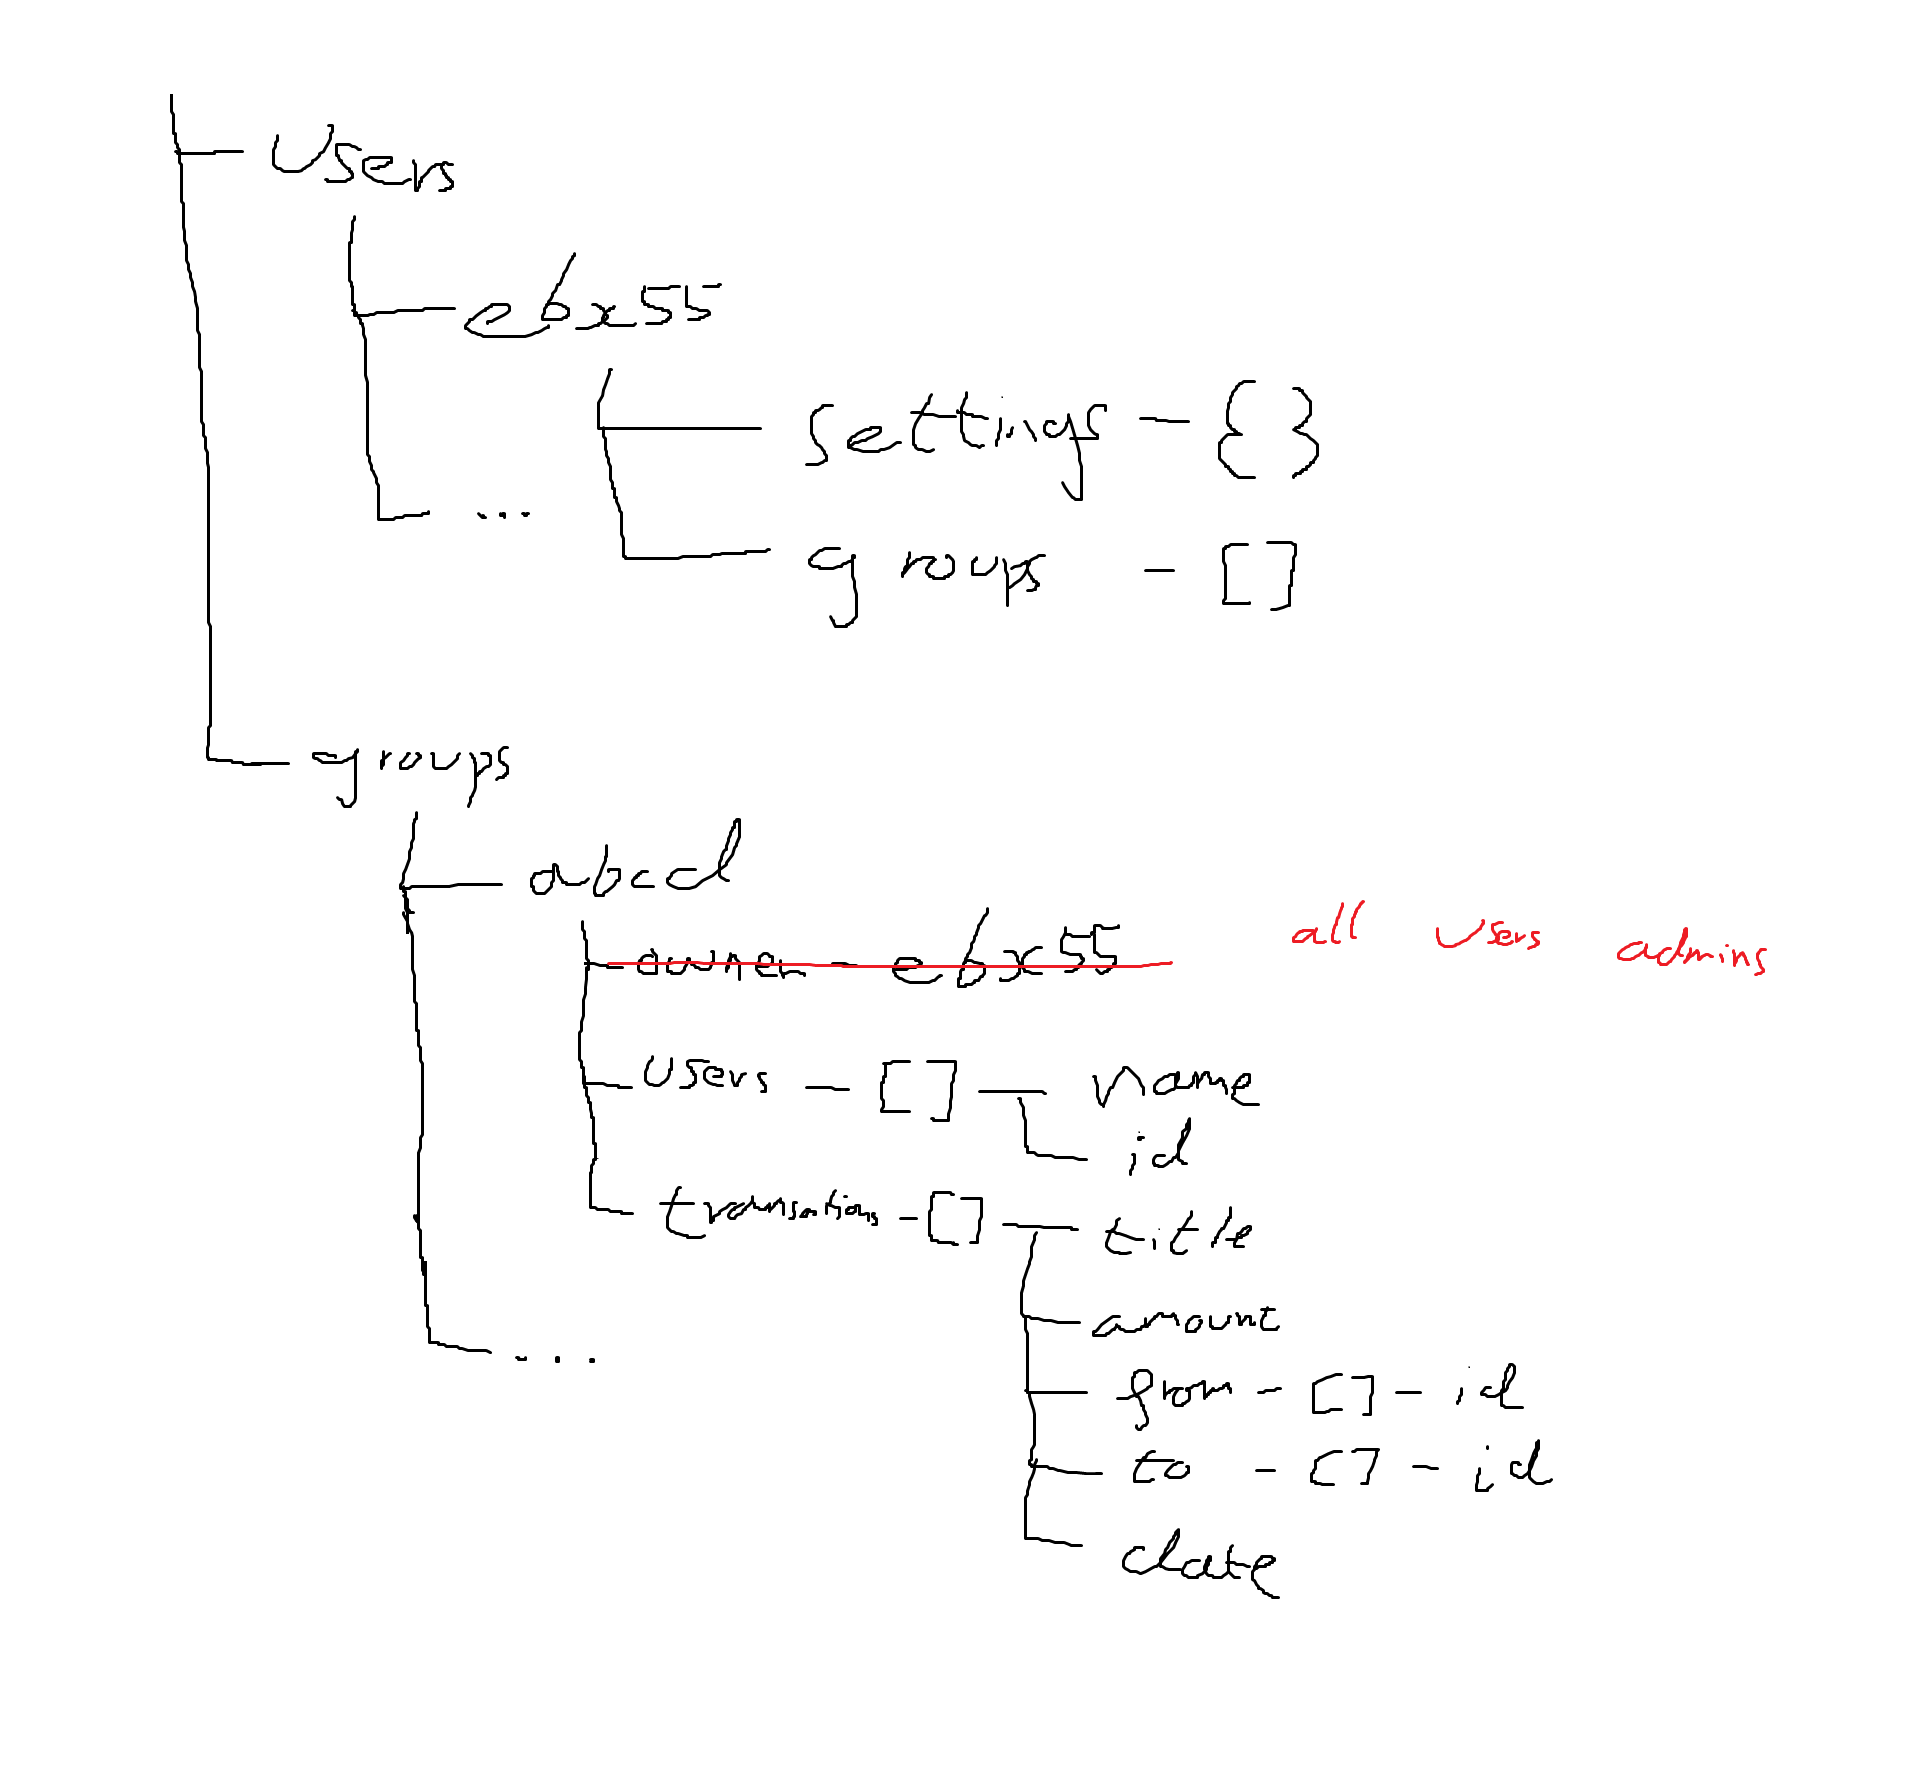 Users
ebx55
settings - {}
...
groups - []
groups
abcd
owner - ebx55 all users admins
users - [] name
id
transactions - [] title
amount
from - [] - id
...
to - [] - id
date